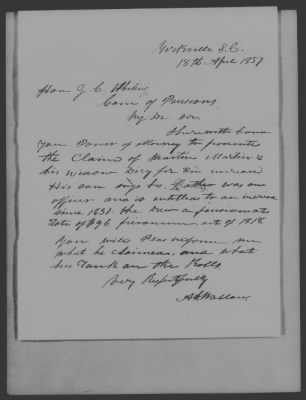 Yorkville S.C.
18th April 1857
Hon G. C. Whiting
Com of Pensions
My Dr Sir
I herewith hand
you Power of attorney to prosecute
the Claim of Martin &
his widow for an increase
His son says his Father was an
officer and is entitled to an increase
since 1831. He Drew a pension at
rate of $96 per annum act of 1818
You will Please inform me
what he claimed, and what
his Rank on the Rolls
Very Respectfully
A S Wallace